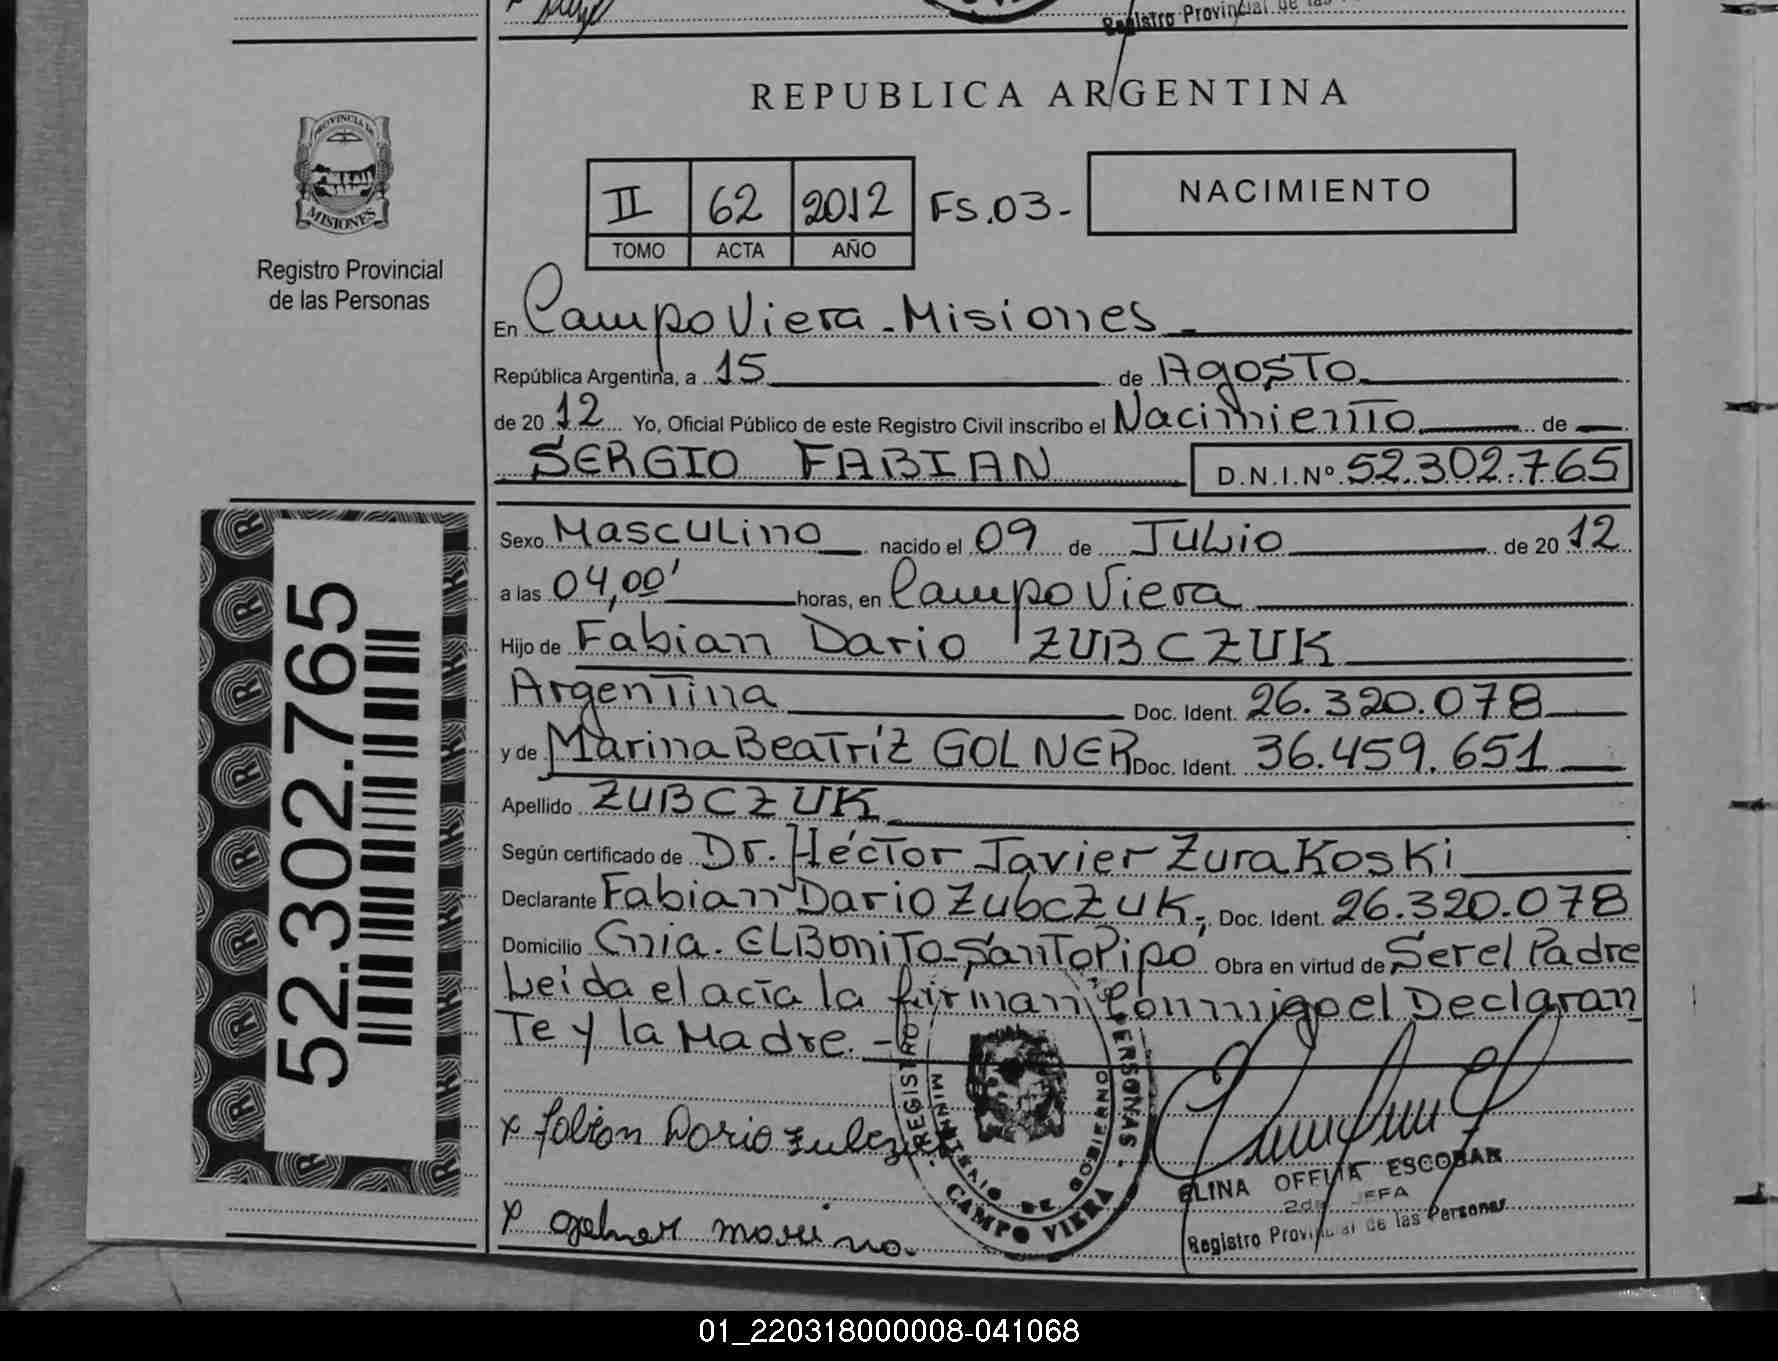 Registro Provincial de las
REPUBLICA ARGENTINA
PROVINCIA DE
MISIONES
Registro Provincial
de las Personas
II 62 2012 FS.03-
TOMO ACTA AÑO
NACIMIENTO
En Campo Viera - Misiones
República Argentina, a 15 de Agosto
de 2012 Yo, Oficial Público de este Registro Civil inscribo el Nacimiento de
SERGIO FABIAN D.N.I.Nº 52.302.765
Sexo Masculino nacido el 09 de Julio de 2012
a las 04,00' horas, en Campo Viera
Hijo de Fabian Dario ZUBCZUK
Argentina Doc. Ident. 26.320.078
y de Marina Beatríz GOLNER Doc. Ident. 36.459.651
Apellido ZUBCZUK
Según certificado de Dr. Héctor Javier Zurakoski
Declarante Fabian Dario Zubczuk, Doc. Ident. 26.320.078
Domicilio Cnia. El Bonito - Santo Pipó Obra en virtud de Ser el Padre
Leida el acta la firman Conmigo el Declaran
te y la Madre. -
x Fabian Dario Zubczuk
x golner marina.
REGISTRO PERSONAS
MINISTERIO DE GOBIERNO
CAMPO VIERA
ELINA OFELIA ESCOBAR
2da JEFA
Registro Provincial de las Personas
52.302.765
01_220318000008-041068